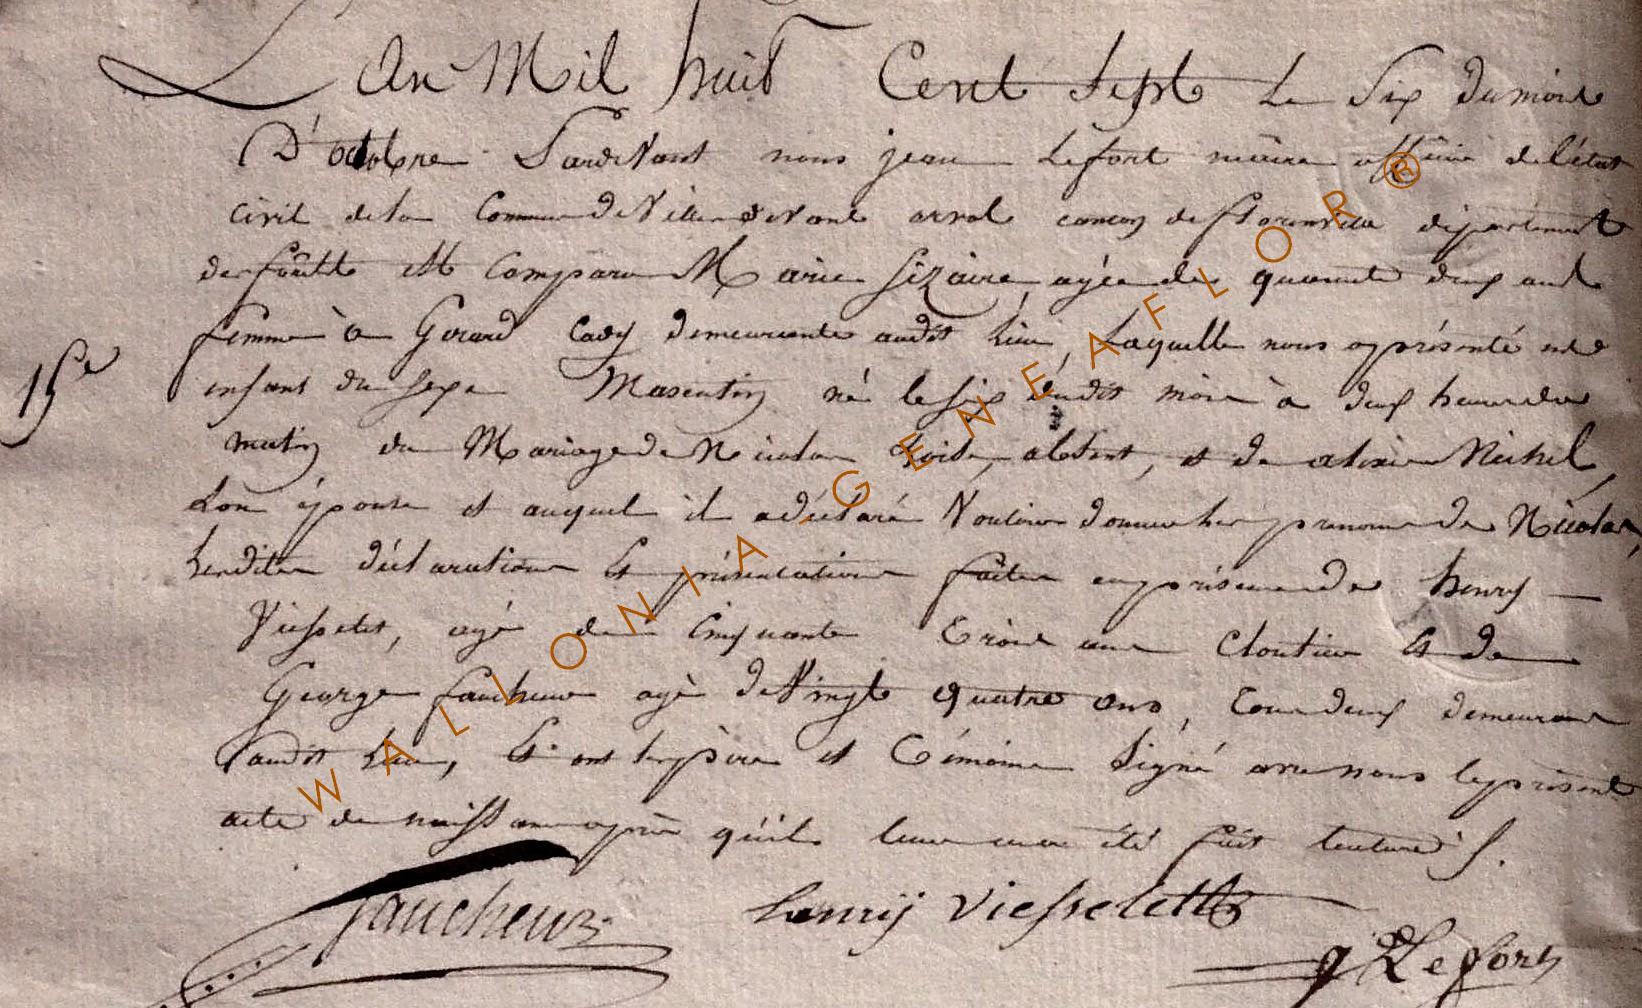 L'An Mil huit Cent Sept le Six du mois
D'octobre Pardevant nous jean Lefort maire officier de l'état
civil de la Commune de Villers devant orval canton de florenville département
des forêts Est Comparu Marie Sizaire, agée de quarente deux ans
femme à Gerard Cady demeurante audit lieu, Laquelle nous a présenté un
15e
enfant du sexe Masculin né le six dudit mois à deux heures du
matin du Mariage de Nicolas absent, et de Michel,
Son épouse et auquel il a déclaré Vouloir donner les prenoms de Nicolas,
Lesdites déclaration Et présentation faites en présence de henry
Viesselet, agé de Cinquante Trois ans Cloutier Et de
George faucheur agé de Vingt quatre ans, Tous deux demeurant
audit Lieu, Et ont les père et Témoins Signé avec nous le présent
acte de naissance après qu'il leur en a été fait lecture
faucheur henrij Viesselette
j Lefort
WALLONIA-GENEAFLOR®